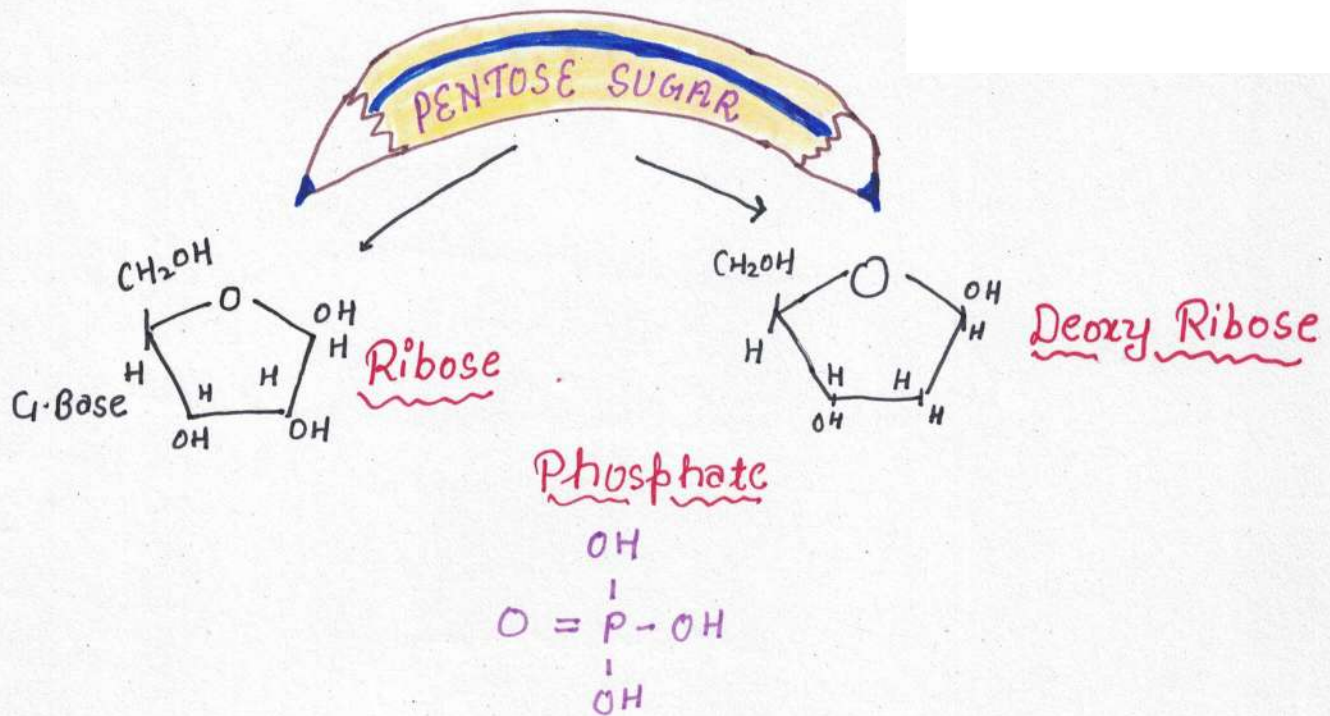 PENTOSE SUGAR
CH₂OH
O
OH
H
H
H
H
OH
OH
G·Base
Ribose
CH₂OH
O
OH
H
H
H
H
OH
H
Deoxy Ribose
Phosphate
OH
O = P - OH
OH